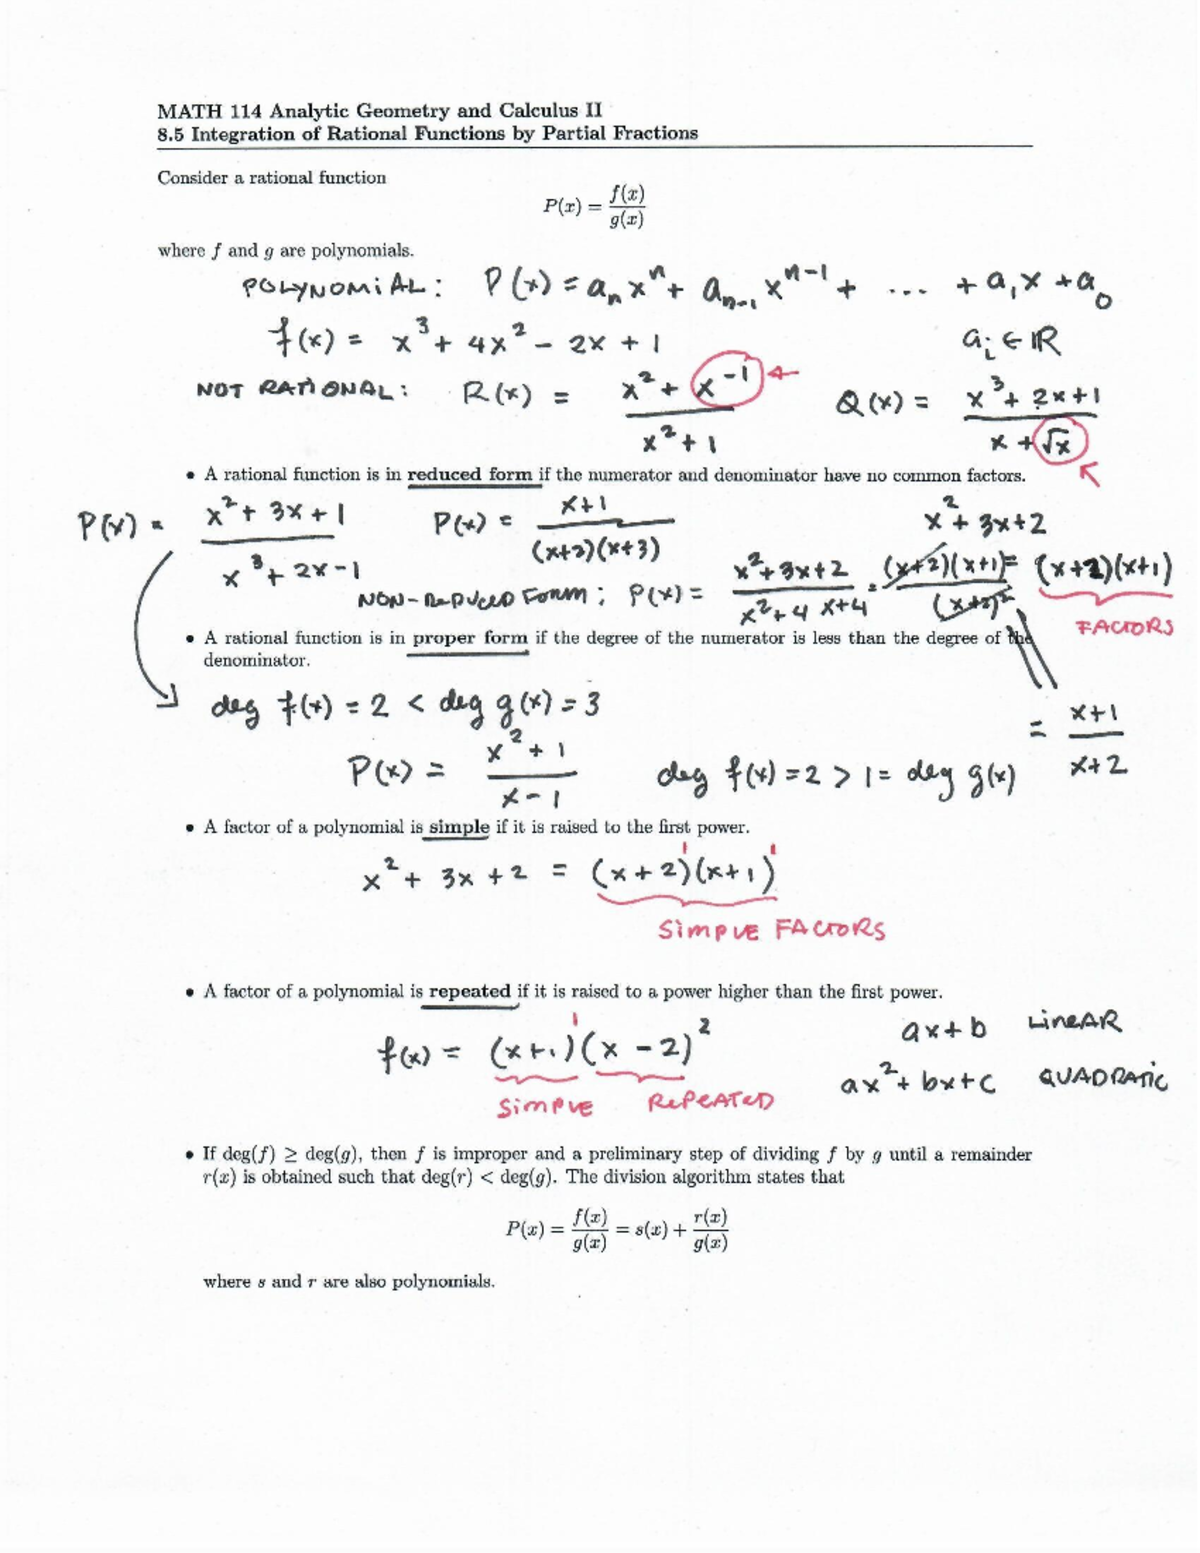 MATH 114 Analytic Geometry and Calculus II
8.5 Integration of Rational Functions by Partial Fractions
Consider a rational function
P(x) = f(x)/g(x)
where f and g are polynomials.
POLYNOMIAL: P(x) = aₙxⁿ + aₙ₋₁xⁿ⁻¹ + ... + a₁x + a₀
f(x) = x³ + 4x² - 2x + 1 aᵢ ∈ ℝ
NOT RATIONAL: R(x) = (x² + x⁻¹)/(x² + 1) Q(x) = (x³ + 2x + 1)/(x + √x)
• A rational function is in reduced form if the numerator and denominator have no common factors.
P(x) = (x² + 3x + 1)/(x³ + 2x - 1) P(x) = (x+1)/((x+2)(x+3)) x² + 3x + 2
NON-REDUCED FORM: P(x) = (x² + 3x + 2)/(x² + 4x + 4) = ((x+2)(x+1))/(x+2)² = (x+2)(x+1)
FACTORS
• A rational function is in proper form if the degree of the numerator is less than the degree of the
denominator.
deg f(x) = 2 < deg g(x) = 3
= (x+1)/(x+2)
P(x) = (x² + 1)/(x - 1) deg f(x) = 2 > 1 = deg g(x)
• A factor of a polynomial is simple if it is raised to the first power.
x² + 3x + 2 = (x+2)¹(x+1)¹
SIMPLE FACTORS
• A factor of a polynomial is repeated if it is raised to a power higher than the first power.
ax + b LINEAR
f(x) = (x+1)¹(x - 2)²
ax² + bx + c QUADRATIC
SIMPLE REPEATED
• If deg(f) ≥ deg(g), then f is improper and a preliminary step of dividing f by g until a remainder
r(x) is obtained such that deg(r) < deg(g). The division algorithm states that
P(x) = f(x)/g(x) = s(x) + r(x)/g(x)
where s and r are also polynomials.